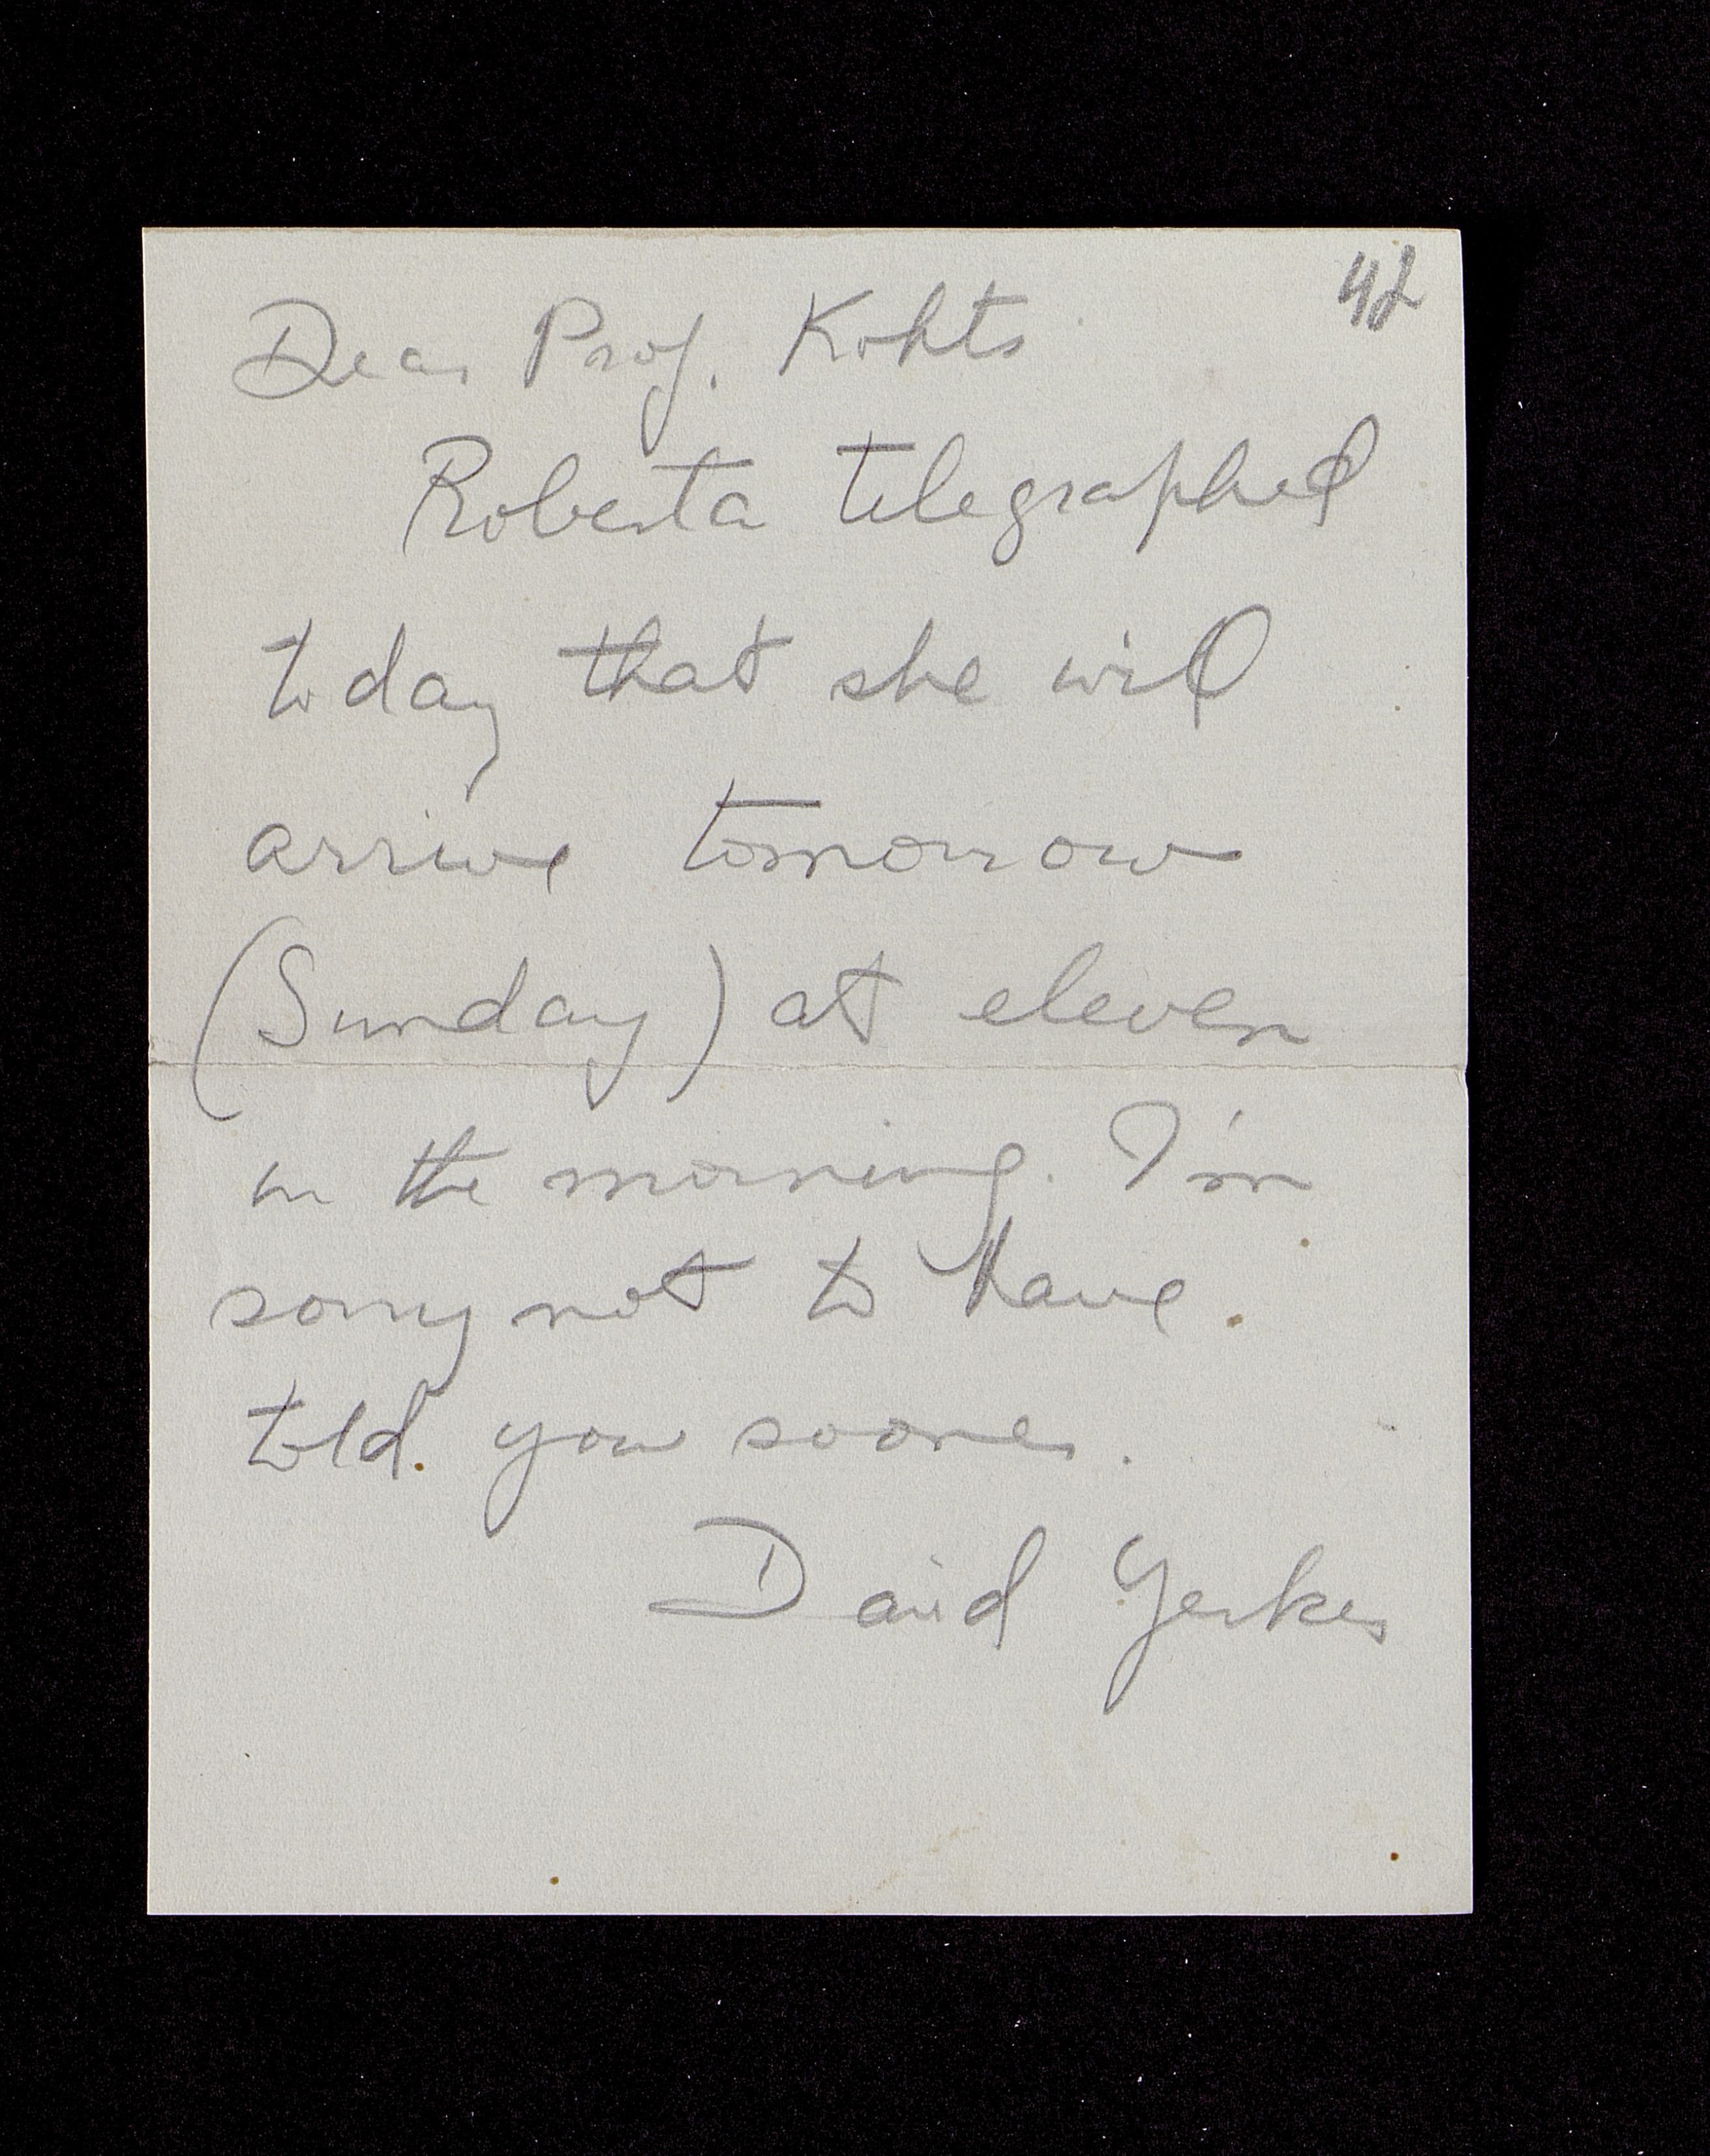 42
Dear Prof. Kohts
Roberta telegraphed
today that she will
arrive tomorrow
(Sunday) at eleven
in the morning. I'm
sorry not to have
told you sooner.
David Yerkes